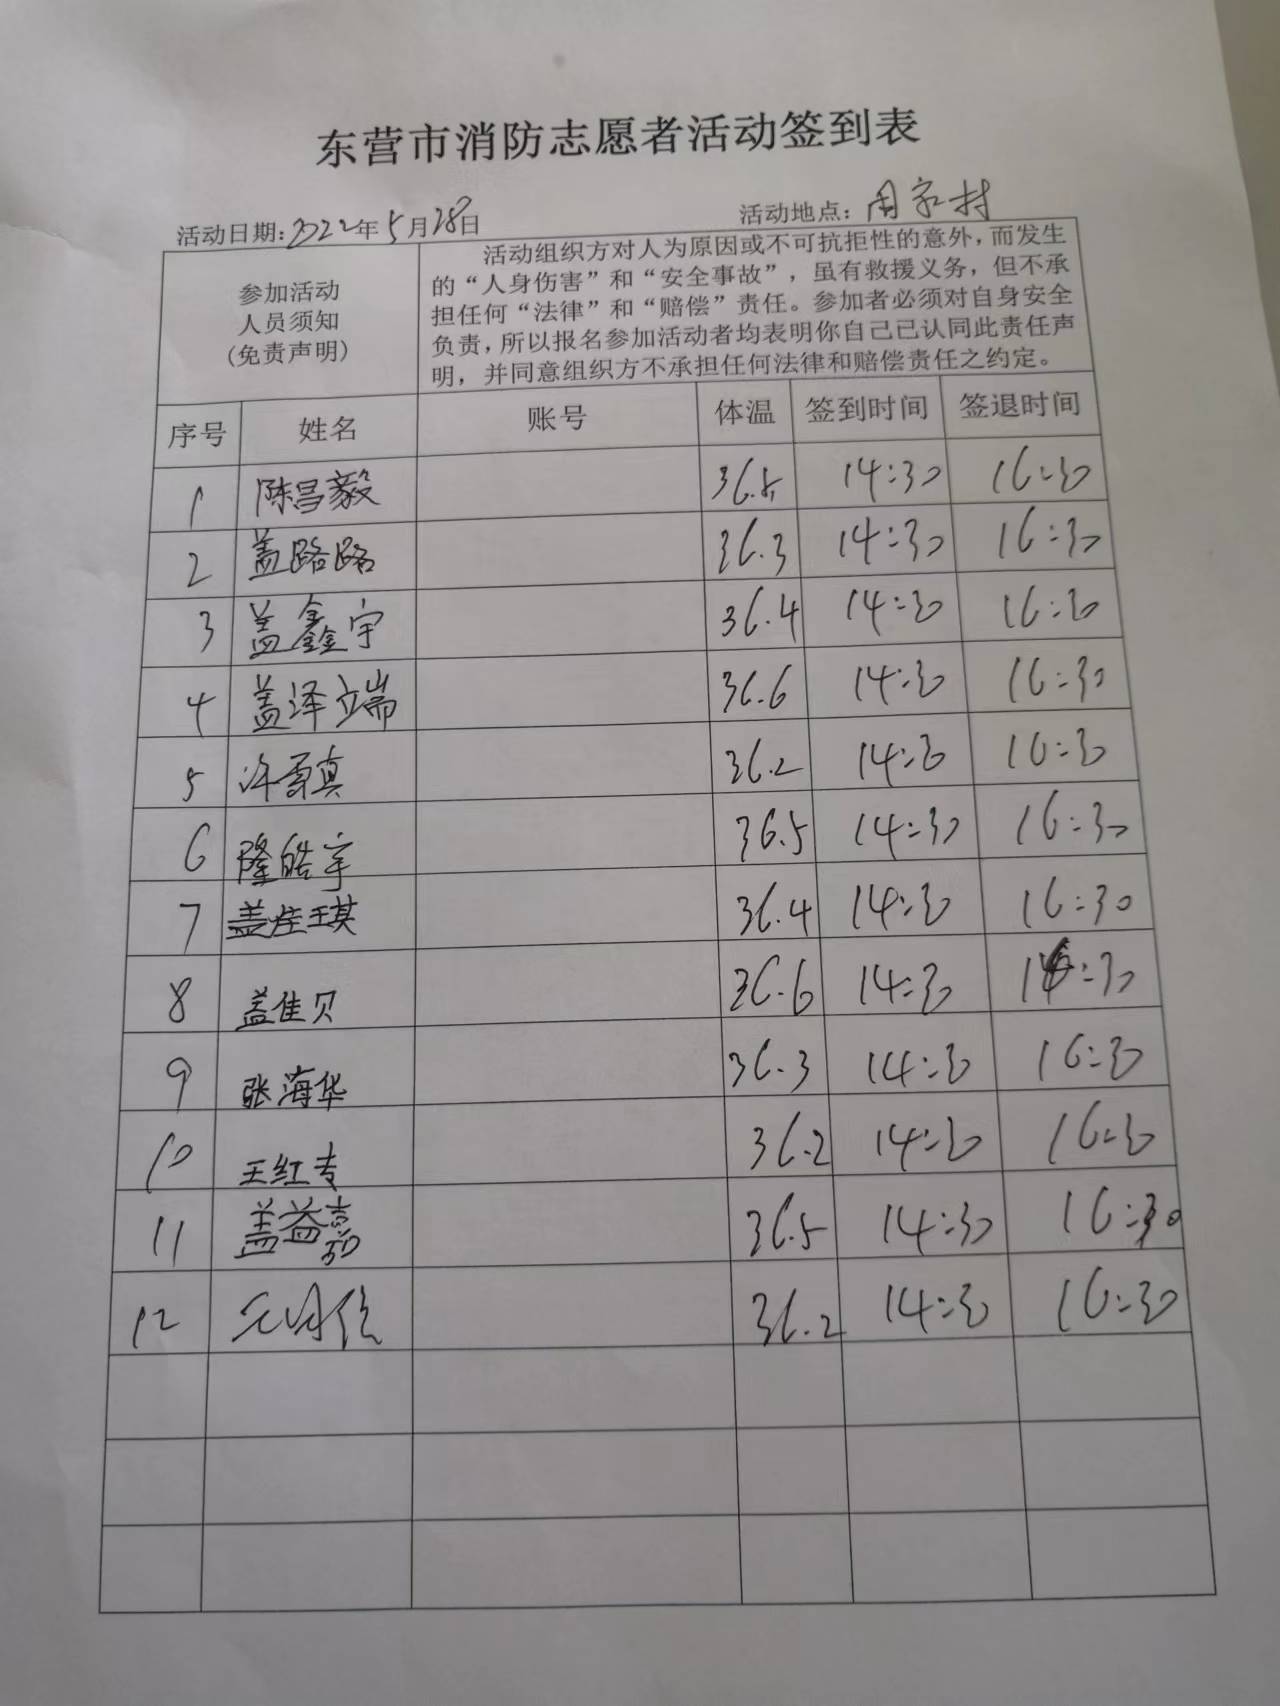 东营市消防志愿者活动签到表
活动日期:2022年5月28日 活动地点:周家村
参加活动
人员须知
(免责声明)
活动组织方对人为原因或不可抗拒性的意外,而发生
的“人身伤害”和“安全事故”,虽有救援义务,但不承
担任何“法律”和“赔偿”责任。参加者必须对自身安全
负责,所以报名参加活动者均表明你自己已认同此责任声
明,并同意组织方不承担任何法律和赔偿责任之约定。
序号 姓名 账号 体温 签到时间 签退时间
1 陈昌毅 36.5 14:30 16:30
2 盖路路 36.3 14:30 16:30
3 盖鑫宇 36.4 14:30 16:30
4 盖泽端 36.6 14:30 16:30
5 许雪真 36.2 14:30 16:30
6 隆皓宇 36.5 14:30 16:30
7 盖佳琪 36.4 14:30 16:30
8 盖佳贝 36.6 14:30 16:30
9 张海华 36.3 14:30 16:30
10 王红专 36.2 14:30 16:30
11 盖益嘉 36.5 14:30 16:30
12 36.2 14:30 16:30